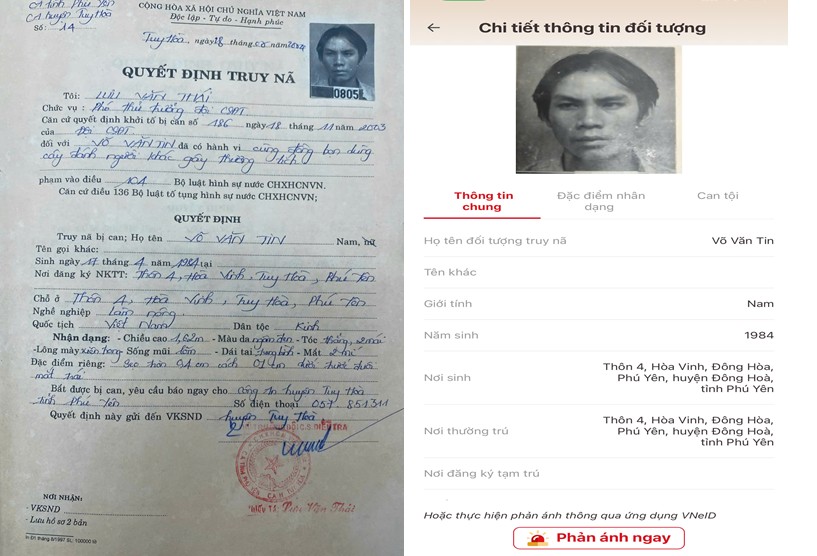 CA tỉnh Phú Yên
CA huyện Tuy Hòa
Số: 14
CỘNG HÒA XÃ HỘI CHỦ NGHĨA VIỆT NAM
Độc lập - Tự do - Hạnh phúc
Tuy Hòa, ngày 18 tháng năm
0805
QUYẾT ĐỊNH TRUY NÃ
Tôi: LƯU VĂN THÁI
Chức vụ: Phó thủ trưởng
Căn cứ quyết định khởi tố bị can số 186 ngày 18 tháng 11 năm 2003
của Đội CSĐT
đối với VÕ VĂN TIN đã có hành vi cùng đồng bọn dùng
cây đánh người khác gây thương tích
phạm vào điều 104 Bộ luật hình sự nước CHXHCNVN.
Căn cứ điều 136 Bộ luật tố tụng hình sự nước CHXHCNVN;
QUYẾT ĐỊNH
Truy nã bị can; Họ tên VÕ VĂN TIN Nam, nữ
Tên gọi khác:
Sinh ngày 17 tháng 4 năm 1984 tại
Nơi đăng ký NKTT: Thôn 4, Hòa Vinh, Tuy Hòa, Phú Yên
Chỗ ở Thôn 4, Hòa Vinh, Tuy Hòa, Phú Yên
Nghề nghiệp làm nông
Quốc tịch Việt Nam Dân tộc Kinh
Nhận dạng: - Chiều cao 1,62m - Màu da ngăm đen - Tóc thẳng, 2 mái
- Lông mày xiên ngang Sống mũi lõm - Dái tai trung bình - Mắt 2 mí
Đặc điểm riêng: Sẹo tròn 0,1 cm cách 01 cm dưới trước đuôi
mắt trái
Bắt được bị can, yêu cầu báo ngay cho Công an huyện Tuy Hòa
tỉnh Phú Yên Số điện thoại 057. 851311
Quyết định này gửi đến VKSND huyện Tuy Hòa
NƠI NHẬN:
- VKSND
- Lưu hồ sơ 2 bản
Chi tiết thông tin đối tượng
Thông tin chung
Đặc điểm nhân dạng
Can tội
Họ tên đối tượng truy nã Võ Văn Tin
Tên khác
Giới tính Nam
Năm sinh 1984
Nơi sinh Thôn 4, Hòa Vinh, Đông Hòa,
Phú Yên, huyện Đông Hoà,
tỉnh Phú Yên
Nơi thường trú Thôn 4, Hòa Vinh, Đông Hòa,
Phú Yên, huyện Đông Hoà,
tỉnh Phú Yên
Nơi đăng ký tạm trú
Hoặc thực hiện phản ánh thông qua ứng dụng VNeID
Phản ánh ngay